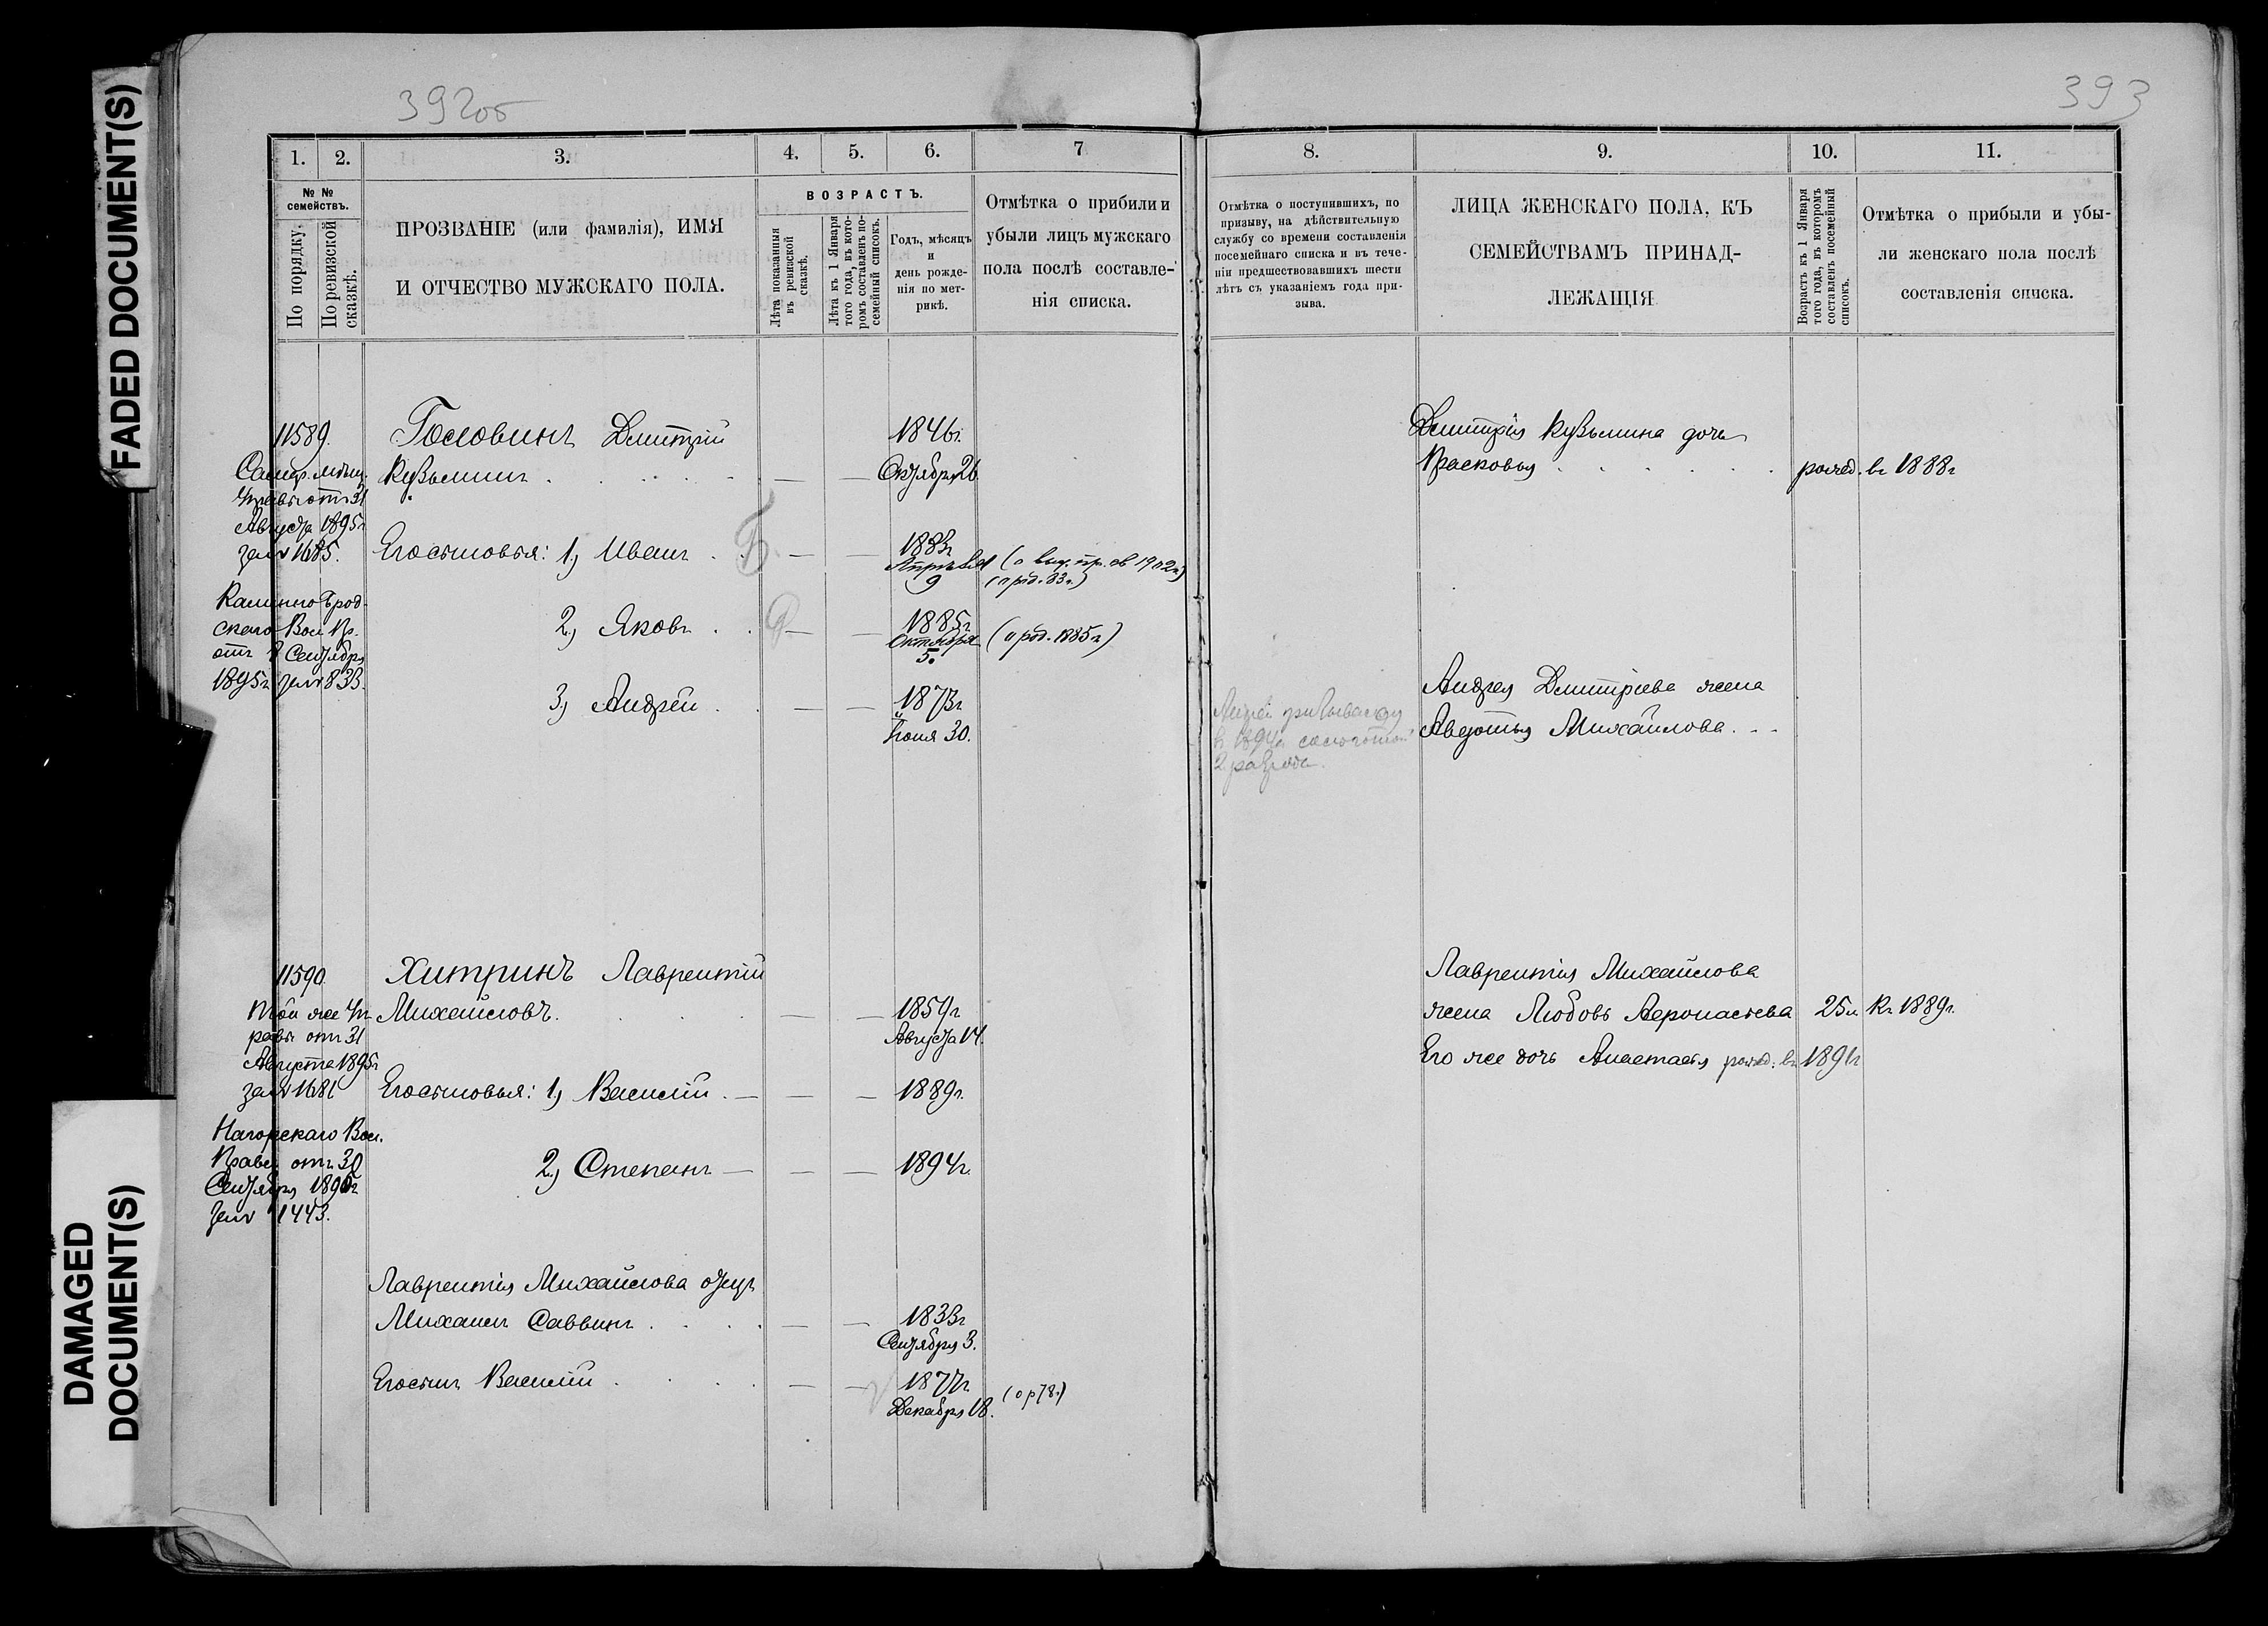 FADED DOCUMENT(S)
DAMAGED
DOCUMENT(S)
392об
1. 2. 3. 4. 5. 6. 7
№ №
семействъ.
По порядку.
По ревизской
сказкѣ.
ПРОЗВАНІЕ (или фамилія), ИМЯ
И ОТЧЕСТВО МУЖСКАГО ПОЛА.
ВОЗРАСТЪ.
Лѣта показанныя
въ ревизской
сказкѣ.
Лѣта къ 1 Января
того года, въ кото-
ромъ составленъ по-
семейный списокъ.
Годъ, мѣсяцъ
и
день рожде-
нія по мет-
рикѣ.
Отмѣтка о прибыли и
убыли лицъ мужскаго
пола послѣ составле-
нія списка.
11589.
Самар. мѣщ.
управы отъ 31
Августа 1895г
за № 1685.
Каменно Брод-
скаго Вол. Пр.
отъ 8 Сентября
1895г за № 833.
Головинъ Дмитрій
Кузьминъ . . . . . — —
1846г.
Октября 26.
Его сыновья: 1) Иванъ . . — —
1883г
Апрѣля
9
(о выд. пр. св 1902г)
(о рođ. 83г.)
2) Яковъ . . — —
1885г
Октября
5.
(о род. 1885г)
3) Андрей . . — —
1873г
Іюня 30.
11590.
Той же Уп
равы отъ 31
Августа 1895г
за № 1681
Нагорскаго Вол.
Правл. отъ 30
Сентября 1895г
за № 1443.
Хитринъ Лаврентій
Михайловъ. . . . — —
1859г
Августа 14.
Его сыновья: 1) Василій . — — —
1889г.
2) Степанъ — — —
1894г.
Лаврентія Михайлова отецъ
Михаилъ Саввинъ . . . . — —
1833г
Сентября 3.
Его сынъ Василій . . . . — —
1877г.
Декабря 18.
(о р 78.)
393
8. 9. 10. 11.
Отмѣтка о поступившихъ, по
призыву, на дѣйствительную
службу со времени составленія
посемейнаго списка и въ тече-
ніи предшествовавшихъ шести
лѣтъ съ указаніемъ года при-
зыва.
ЛИЦА ЖЕНСКАГО ПОЛА, КЪ
СЕМЕЙСТВАМЪ ПРИНАД-
ЛЕЖАЩІЯ
Возрастъ къ 1 Января
того года, въ которомъ
составленъ посемейный
списокъ.
Отмѣтка о прибыли и убы-
ли женскаго пола послѣ
составленія списка.
Дмитрія Кузьмина дочь
Прасковья . . . . . . рожд. въ 1888г
Андрей
въ 1894г
2 разряда.
Андрея Дмитріева жена
Авдотья Михайлова. . .
Лаврентія Михайлова
жена Любовь 25 л. Къ 1889г.
Его же дочь Анастасія рожд: въ 1891г